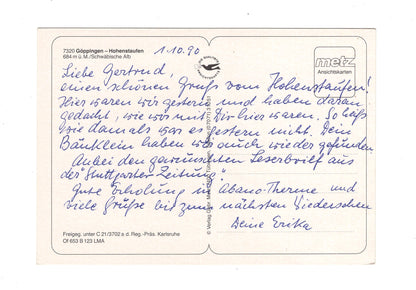 7320 Göppingen - Hohenstaufen
684 m ü. M./Schwäbische Alb)
1.10.90
metz
Ansichtskarten
Liebe Gertrud,
einen schönen Gruß vom Hohenstaufen!
Hier waren wir gestern und haben daran
gedacht, wie wir mit Dir hier waren. So heiß
wie damals war es gestern nicht. Dein
Bänklein haben wir auch wieder gefunden.
Anbei den gewünschten Leserbrief aus
der "Stuttgarter Zeitung".
Gute Erholung in Abano-Therme und
viele Grüße bis zum nächsten Wiedersehen
Deine Erika
Freigeg. unter C 21/3702 s d. Reg.-Präs. Karlsruhe
Of 653 B 123 LMA